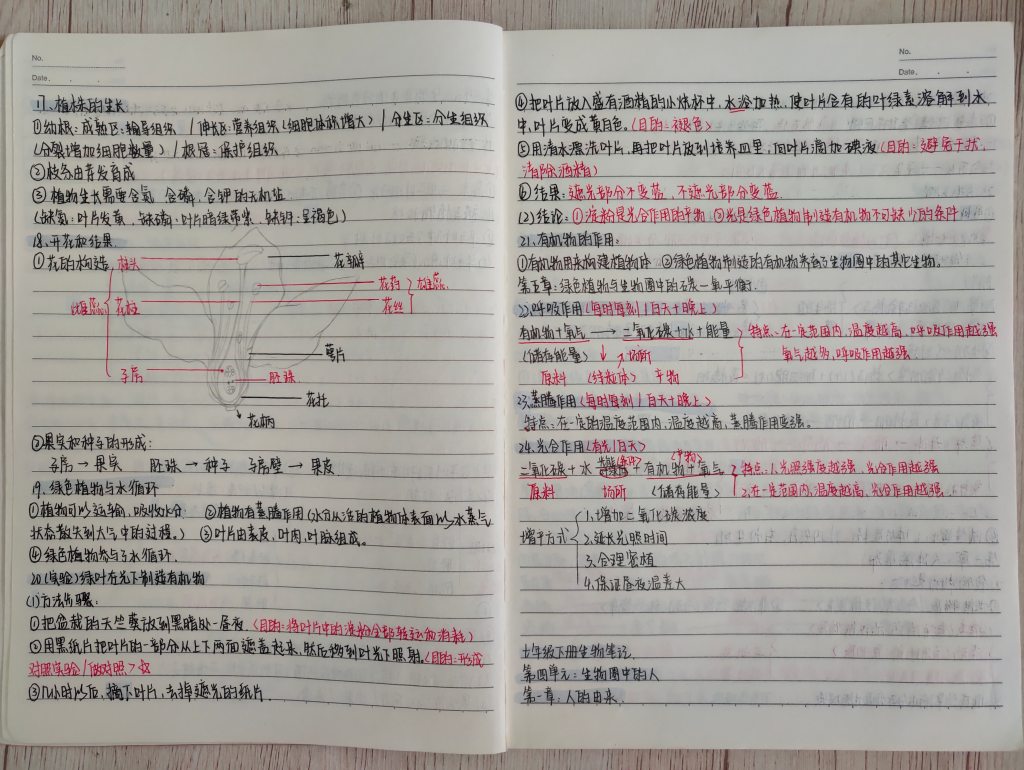 No.
Date. . .
17. 植株的生长
①幼根:成熟区:输导组织 / 伸长区:营养组织(细胞体积增大) / 分生区:分生组织
(分裂增加细胞数量) / 根冠:保护组织
②枝条由芽发育成
③植物生长需要含氮、含磷、含钾的无机盐
(缺氮:叶片发黄、缺磷:叶片暗绿带紫、缺钾:呈褐色)
18.开花和结果
①花的构造,柱头
花瓣
花药
雄蕊
雌蕊
花柱
花丝
萼片
子房
胚珠
花托
花柄
②果实和种子的形成:
子房→果实 胚珠→种子 子房壁→果皮
19.绿色植物与水循环
①植物可以运输,吸收水分 ②植物有蒸腾作用(水分从活的植物体表面以水蒸气
状态散失到大气中的过程)。③叶片由表皮,叶肉,叶脉组成。
④绿色植物参与了水循环.
20(实验)绿叶在光下制造有机物
(1)方法步骤:
①把盆栽的天竺葵放到黑暗处一昼夜.(目的:将叶片中的淀粉全部转运和消耗)
②用黑纸片把叶片的一部分从上下两面遮盖起来,然后挪到叶光下照射。(目的:形成
对照实验/做对照>☆
③几小时以后,摘下叶片,去掉遮光的纸片.
No.
Date. . .
④把叶片放入盛有酒精的小烧杯中,水浴加热,使叶片含有的叶绿素溶解到水
中,叶片变成黄白色。(目的:褪色)
⑤用清水漂洗叶片,再把叶片放到培养皿里,向叶片滴加碘液(目的:避免干扰,
消除酒精)
⑥结果:遮光部分不变蓝,不遮光部分变蓝
(2)结论:①淀粉是光合作用的产物 ②光是绿色植物制造有机物不可缺少的条件
21.有机物的作用:
①有机物用来构建植物体 ②绿色植物制造的有机物养育了生物圈中的其它生物.
第五章:绿色植物与生物圈中的碳—氧平衡.
22.呼吸作用(每时每刻/白天+晚上)
有机物+氧气→二氧化碳+水+能量
特点:在一定范围内,温度越高,呼吸作用越强
(储存能量) 场所
氧气越多,呼吸作用越强
原料 (线粒体) 产物
23.蒸腾作用(每时每刻/白天+晚上)
特点:在一定的温度范围内,温度越高,蒸腾作用变强。
24.光合作用(有光/白天)
(条件) (产物)
二氧化碳+水 有机物+氧气
特点:1.光照强度越强,光合作用越强
原料 场所 (储存能量)
2.在一定范围内,温度越高,光合作用越强
增产方式
1.增加二氧化碳浓度
2.延长光照时间
3.合理密植
4.保证昼夜温差大
七年级下册生物笔记
第四单元:生物圈中的人
第一章:人的由来.